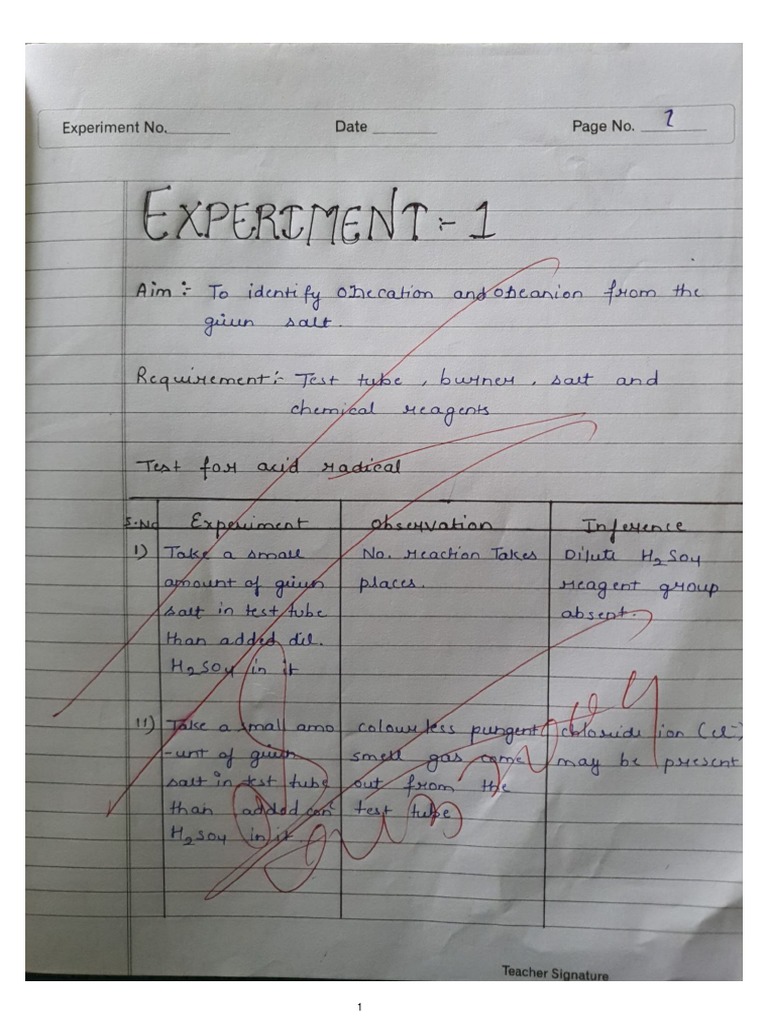 Experiment No.
Date
Page No. 1
EXPERIMENT:- 1
Aim:- To identify one cation and one anion from the
giiun salt.
Requirement:- Test tube, burner, salt and
chemical reagents
Test for acid radical
S.No Experiment Observation Inference
I) Take a small No. reaction Takes Dilute H2SO4
amount of giiun places. reagent group
salt in test tube absent.
than added dil.
H2SO4 in it
II) Take a small amo colourless pungent chloride ion (cl-)
-unt of giiun smell gas come may be present
salt in test tube out from the
than added con test tube
H2SO4 in it
Teacher Signature
1